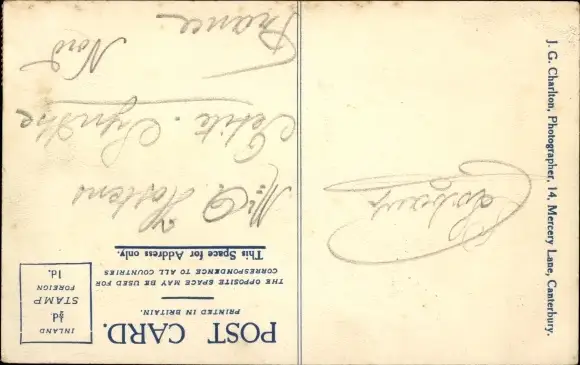 POST CARD.
PRINTED IN BRITAIN.
THE OPPOSITE SPACE MAY BE USED FOR
CORRESPONDENCE TO ALL COUNTRIES
This Space for Address only.
INLAND
½d.
STAMP
FOREIGN
1d.
Petite-Synthe
Nord
France
J. G. Charlton, Photographer, 14, Mercery Lane, Canterbury.